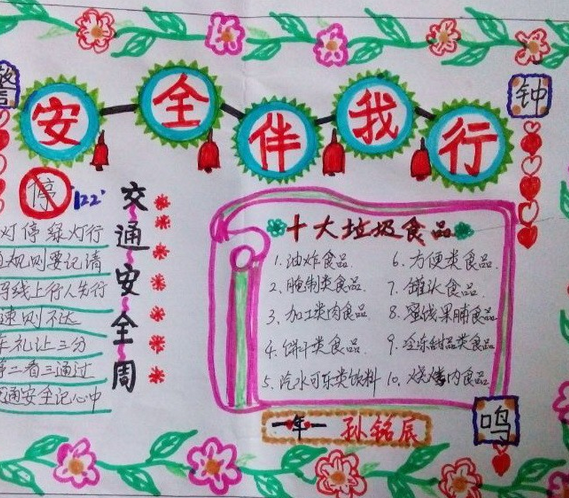 安全伴我行
警
钟
停 122
灯停绿灯行
规则要记请
线上行人先行
速则不达
礼让三分
二看三通过
通安全记心中
交通安全周
十大垃圾食品
1. 油炸食品
2. 腌制类食品
3. 加工类肉食品
4. 饼干类食品
5. 汽水可乐类饮料
6. 方便类食品
7. 罐头食品
8. 蜜饯果脯食品
9. 冷冻甜品类食品
10. 烧烤肉食品
一年一 孙铭辰
鸣